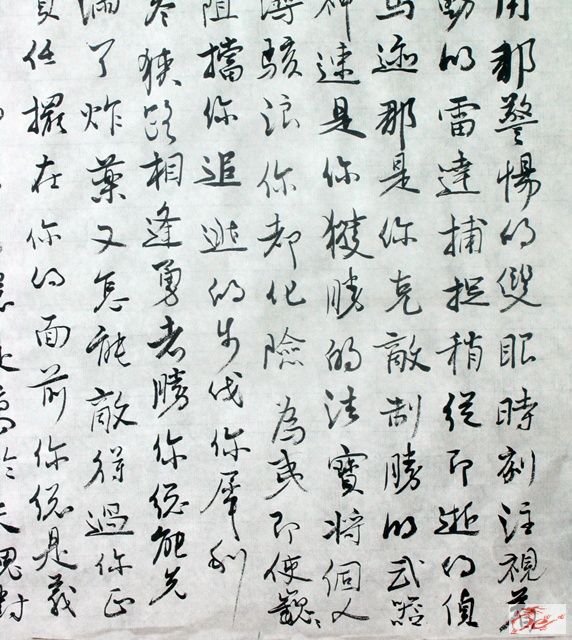 用那警惕的雙眼時刻注視着
動的雷達捕捉稍縱即逝的偵
馬迹那是你克敵制勝的武器
神速是你獲勝的法寶將個人
濤駭浪你都化險為夷即使巍巍
阻擋你追逃的步伐你犀利
冬狹路相逢勇者勝你總能先
滿了炸藥又怎能敵得過你正
負任擺在你的面前你總是義
對